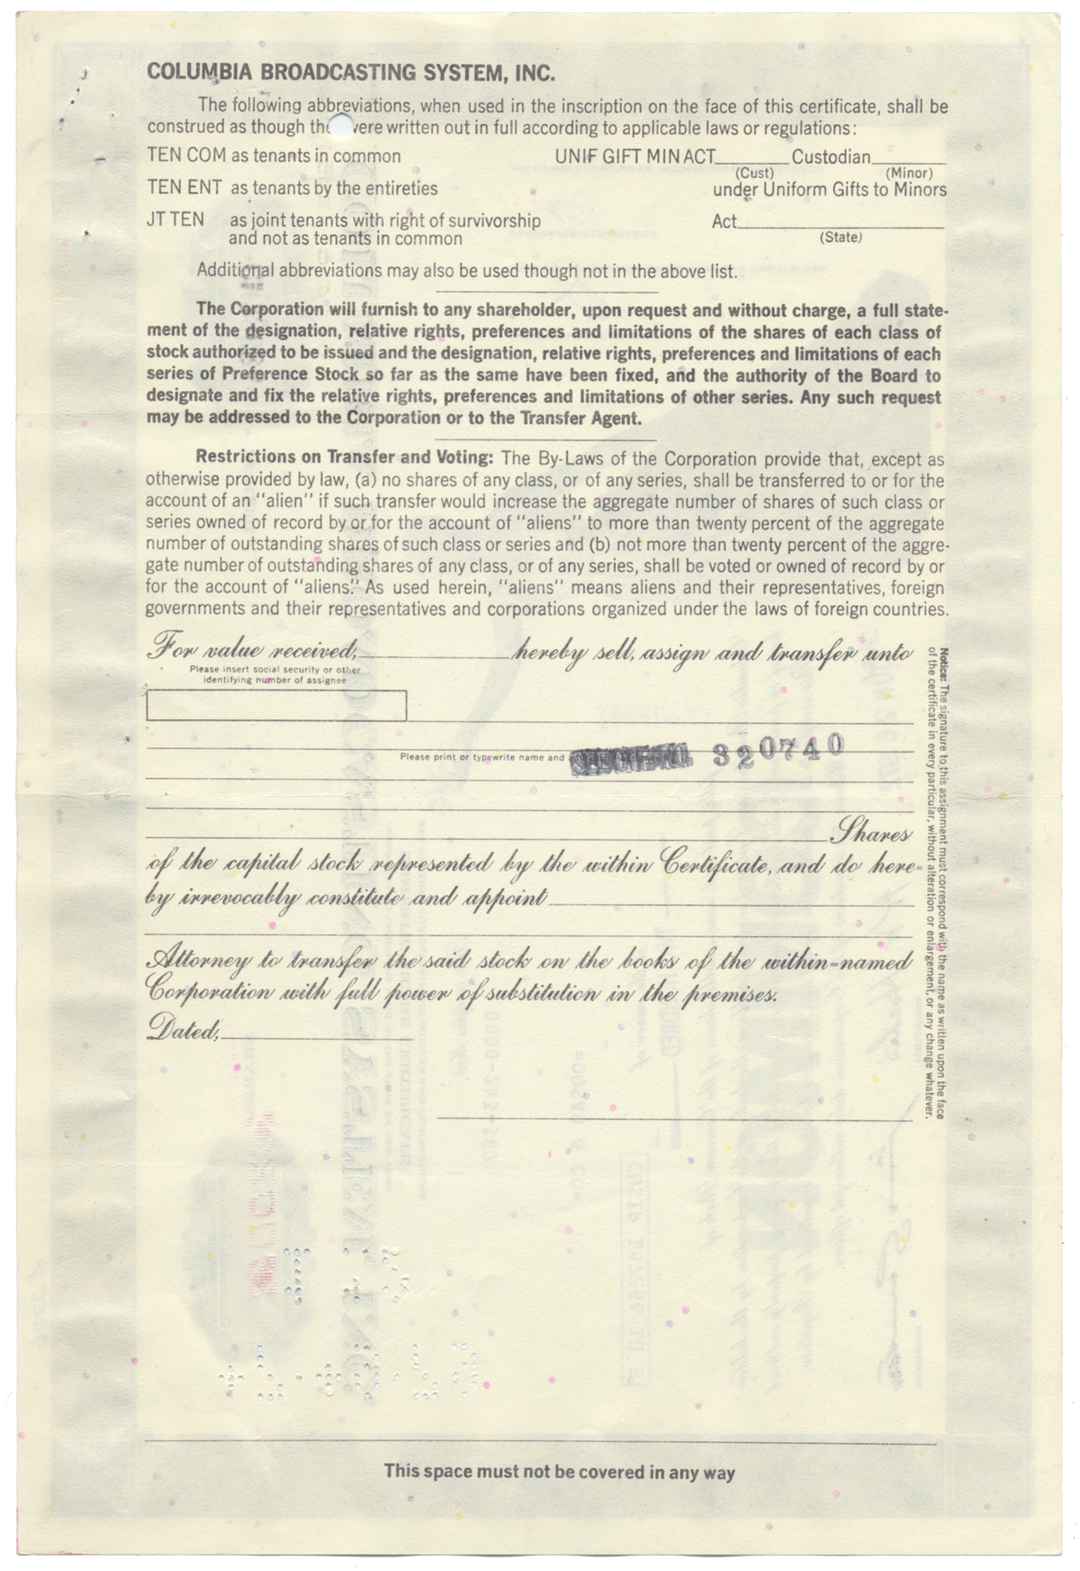 COLUMBIA BROADCASTING SYSTEM, INC.
The following abbreviations, when used in the inscription on the face of this certificate, shall be
construed as though were written out in full according to applicable laws or regulations:
TEN COM as tenants in common
UNIF GIFT MIN ACT______ Custodian______
(Cust) (Minor)
TEN ENT as tenants by the entireties
under Uniform Gifts to Minors
JT TEN as joint tenants with right of survivorship
and not as tenants in common
Act______
(State)
Additional abbreviations may also be used though not in the above list.
The Corporation will furnish to any shareholder, upon request and without charge, a full state-
ment of the designation, relative rights, preferences and limitations of the shares of each class of
stock authorized to be issued and the designation, relative rights, preferences and limitations of each
series of Preference Stock so far as the same have been fixed, and the authority of the Board to
designate and fix the relative rights, preferences and limitations of other series. Any such request
may be addressed to the Corporation or to the Transfer Agent.
Restrictions on Transfer and Voting: The By-Laws of the Corporation provide that, except as
otherwise provided by law, (a) no shares of any class, or of any series, shall be transferred to or for the
account of an "alien" if such transfer would increase the aggregate number of shares of such class or
series owned of record by or for the account of "aliens" to more than twenty percent of the aggregate
number of outstanding shares of such class or series and (b) not more than twenty percent of the aggre-
gate number of outstanding shares of any class, or of any series, shall be voted or owned of record by or
for the account of "aliens." As used herein, "aliens" means aliens and their representatives, foreign
governments and their representatives and corporations organized under the laws of foreign countries.
For value received,______ hereby sell, assign and transfer unto
Please insert social security or other
identifying number of assignee
Please print or typewrite name and
320740
Shares
of the capital stock represented by the within Certificate, and do here-
by irrevocably constitute and appoint______
Attorney to transfer the said stock on the books of the within-named
Corporation with full power of substitution in the premises.
Dated,______
Notice: The signature to this assignment must correspond with the name as written upon the face
of the certificate in every particular, without alteration or enlargement, or any change whatever.
This space must not be covered in any way